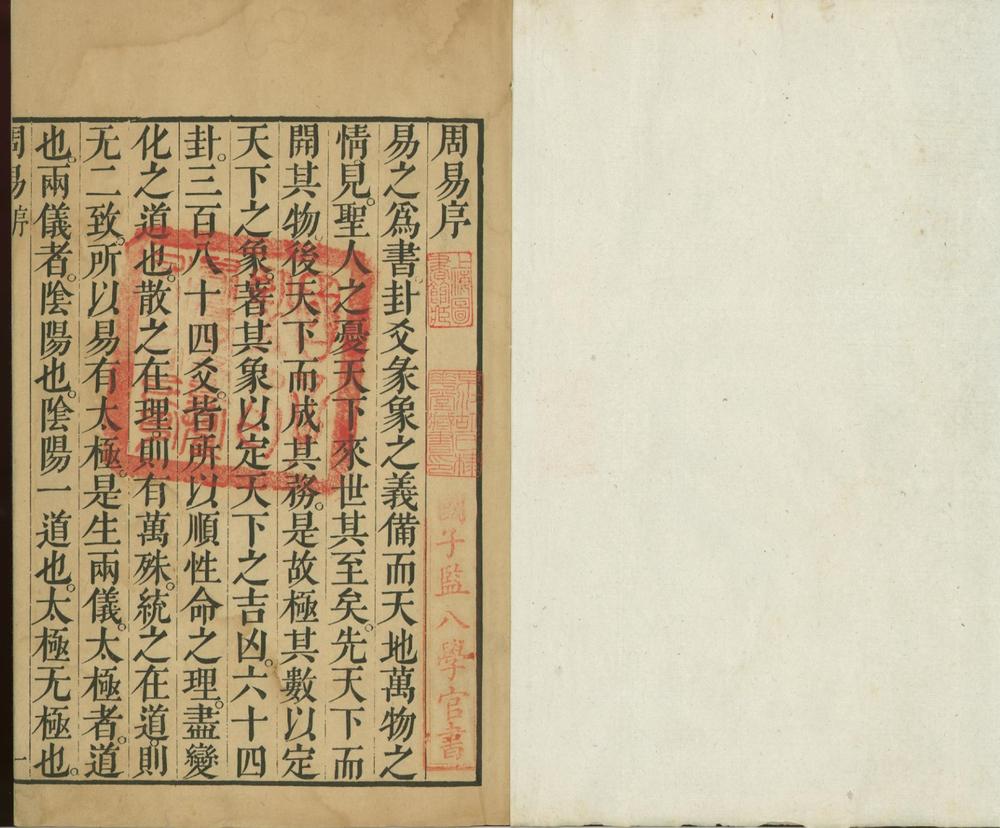 周易序
國子監八學官書
易之爲書。卦爻彖象之義備而天地萬物之
情見。聖人之憂天下來世其至矣。先天下而
開其物。後天下而成其務。是故極其數以定
天下之象。著其象以定天下之吉凶。六十四
卦。三百八十四爻。皆所以順性命之理。盡變
化之道也。散之在理。則有萬殊。統之在道。則
无二致。所以易有太極。是生兩儀。太極者。道
也。兩儀者。陰陽也。陰陽一道也。太極无極也。
周易序
一